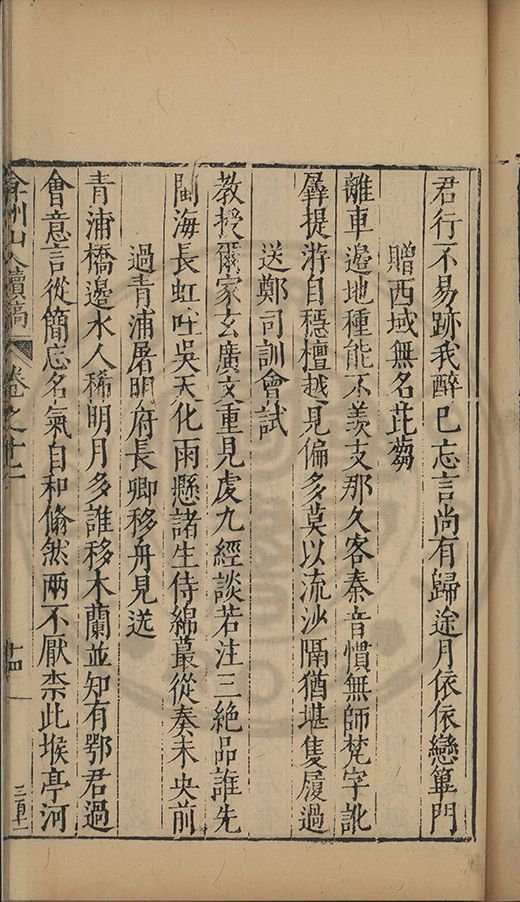 君行不易跡我醉已忘言尚有歸途月依依戀蓽門
贈西域無名苾蒭
離車邊地種能不羨支那久客秦音慣無師梵字訛
羼提游自穩檀越見偏多莫以流沙隔猶堪隻履過
送鄭司訓會試
教授爾家玄廣文重見虔九經談若注三絶品誰先
閩海長虹吐吳天化雨懸諸生侍綿蕞從奏未央前
過青浦屠明府長卿移舟見送
青浦橋邊水人稀明月多誰移木蘭並知有鄂君過
會意言從簡忘名氣自和翛然兩不厭柰此堠亭河
弇州山人續稿 卷之十二 十四